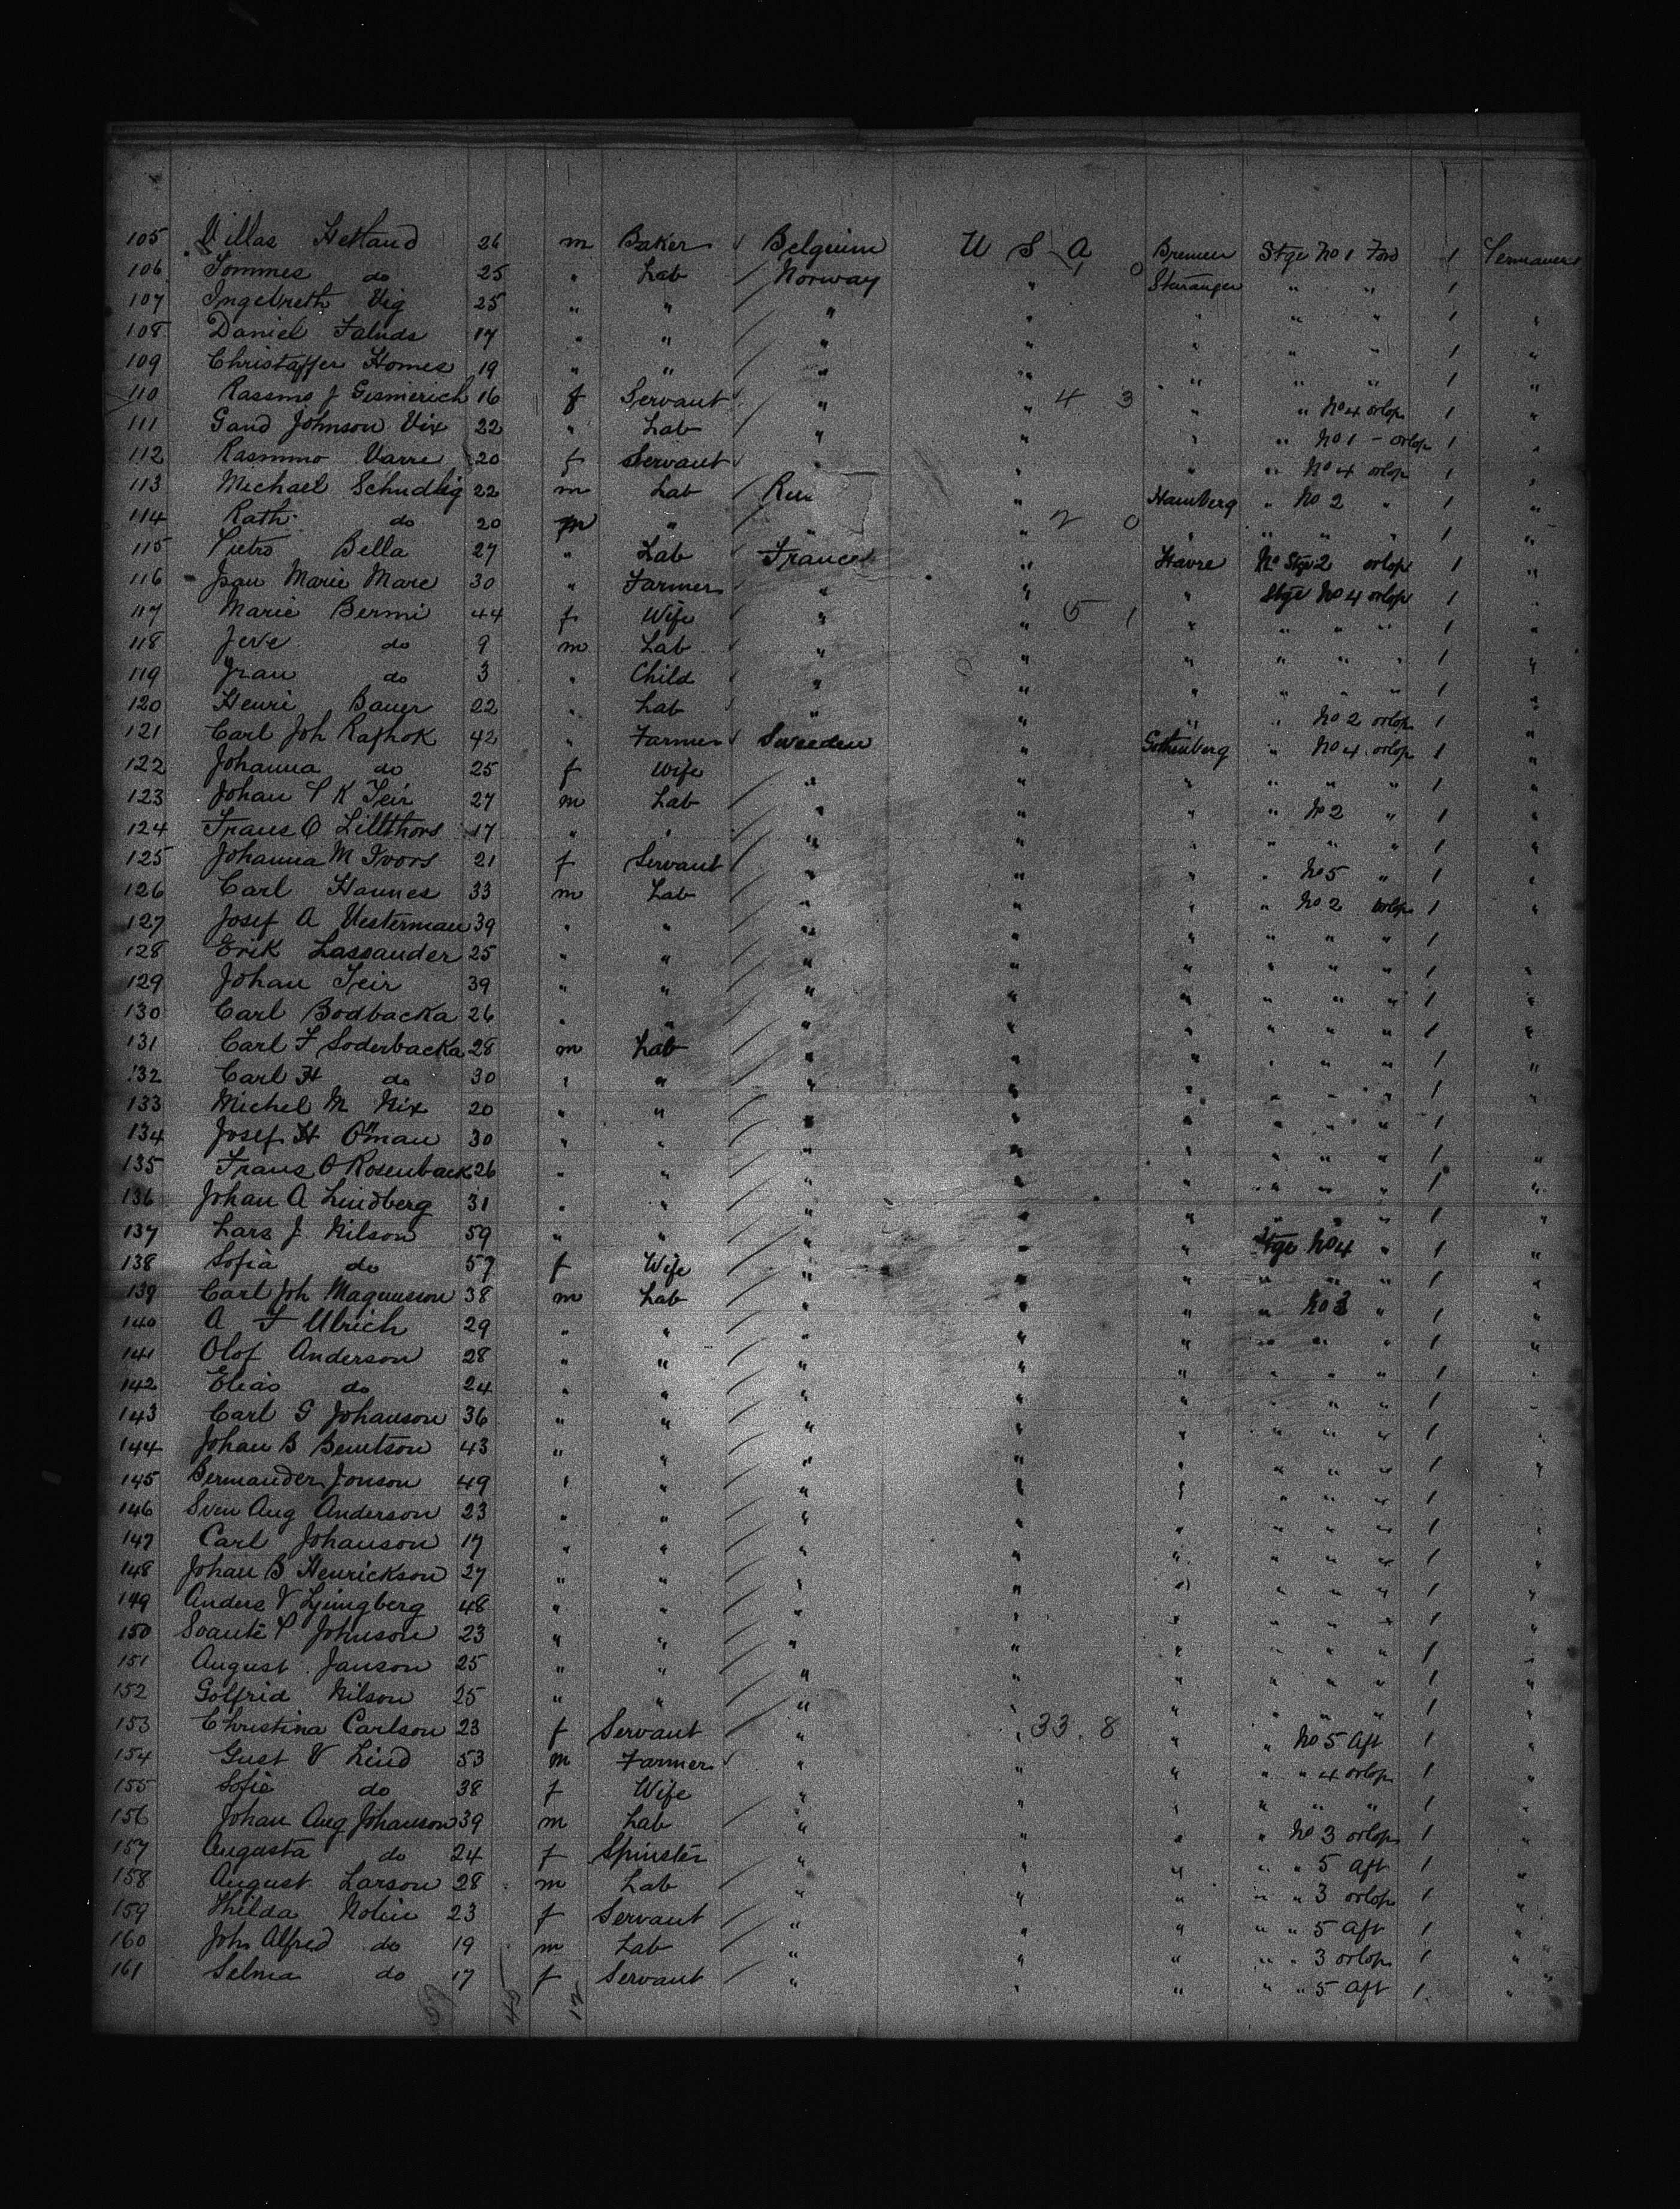 105 Villas Hetland 26 m Baker Belgium U S A Bremen Stge No 1 Ford 1
106 Tommes do 25 " Lab Norway " 1 0 Stavanger " " 1
107 Ingebreth Vig 25 " " " " " " " 1 "
108 Daniel Falnds 17 " " " " " " " 1 "
109 Christaffer Homes 19 " " " " " " " 1 "
110 Rassmo J Gesmerich 16 f Servant " " 4 3 " " No 4 orlop 1 "
111 Gand Johnson Vix 22 " Lab " " " " No 1 - orlop 1 "
112 Rasmmo Varre 20 f Servant " " " " No 4 orlop 1 "
113 Michael Schudlig 22 m Lab " Hamberg " No 2 " 1 "
114 Rath do 20 m " " " 2 0 " " " " 1 "
115 Pietro Bella 27 " Lab France " Havre No Stge 2 orlop 1 "
116 Jean Marie Mare 30 " Farmer " " " Stge No 4 orlop 1 "
117 Marie Bermi 44 f Wife " " 5 1 " " " " 1 "
118 Jeve do 9 m Lab " " " " " " 1 "
119 Jean do 3 " Child " " " " " " 1 "
120 Henri Bauer 22 " Lab " " " " No 2 orlop 1 "
121 Carl Joh Rafhok 42 " Farmer Sweeden " Gothenberg " No 4 orlop 1 "
122 Johanna do 25 f Wife " " " " " " 1 "
123 Johan P K Teir 27 m Lab " " " " No 2 " 1 "
124 Frans O Lillthors 17 " " " " " " " " 1 "
125 Johanna M Ivors 21 f Servant " " " " No 5 " 1 "
126 Carl Hannes 33 m Lab " " " " No 2 orlop 1 "
127 Josef A Vesterman 39 " " " " " " " " 1
128 Erik Lassander 25 " " " " " " " " 1 "
129 Johan Teir 39 " " " " " " " " 1 "
130 Carl Bodbacka 26 " " " " " " " " 1 "
131 Carl F Soderbacka 28 m Lab " " " " " " 1 "
132 Carl H do 30 " " " " " " " " 1 "
133 Michel M Nix 20 " " " " " " " " 1 "
134 Josef H Öman 30 " " " " " " " " 1 "
135 Frans O Rosenback 26 " " " " " " " " 1 "
136 Johan A Lindberg 31 " " " " " " " " 1 "
137 Lars J. Nilson 59 " " " " " Stge No 4 " 1 "
138 Sofia do 57 f Wife " " " " " " 1 "
139 Carl Joh Magnuson 38 m Lab " " " " No 3 " 1 "
140 A F Ulrich 29 " " " " " " " " 1 "
141 Olof Anderson 28 " " " " " " " " 1 "
142 Elias do 24 " " " " " " " " 1 "
143 Carl G Johanson 36 " " " " " " " " 1 "
144 Johan B Berntson 43 " " " " " " " " 1 "
145 Bermander Jonson 49 " " " " " " " " 1
146 Sven Aug Anderson 23 " " " " " " " " 1 "
147 Carl Johanson 17 " " " " " " " " 1 "
148 Johan B Henrickson 27 " " " " " " " " 1 "
149 Anders V Ljungberg 48 " " " " " " " " 1 "
150 Svante P Johnson 23 " " " " " " " " 1 "
151 August Janson 25 " " " " " " " " 1 "
152 Golfrid Nilson 25 " " " " " " " " 1 "
153 Christina Carlson 23 f Servant " " 33. 8 " " No 5 Aft 1 "
154 Gust V Lind 53 m Farmer " " " " " 4 orlop 1 "
155 Sofia do 38 f Wife " " " " " " 1 "
156 Johan Aug Johanson 39 m Lab " " " " No 3 orlop 1 "
157 Augusta do 24 f Spinster " " " " " 5 aft 1 "
158 August Larson 28 m Lab " " " " " 3 orlop 1 "
159 Hilda Nolin 23 f Servant " " " " " 5 Aft 1 "
160 Joh Alfred do 19 m Lab " " " " " 3 orlop 1 "
161 Selma do 17 f Servant " " " " " 5 Aft 1 "
45 12